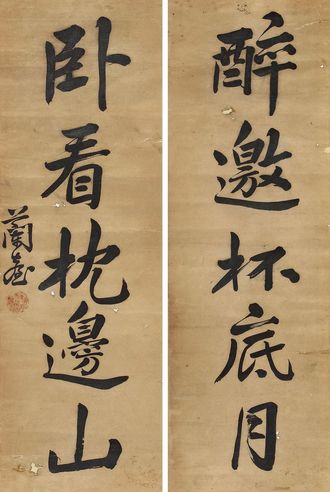 醉邀杯底月
卧看枕邊山